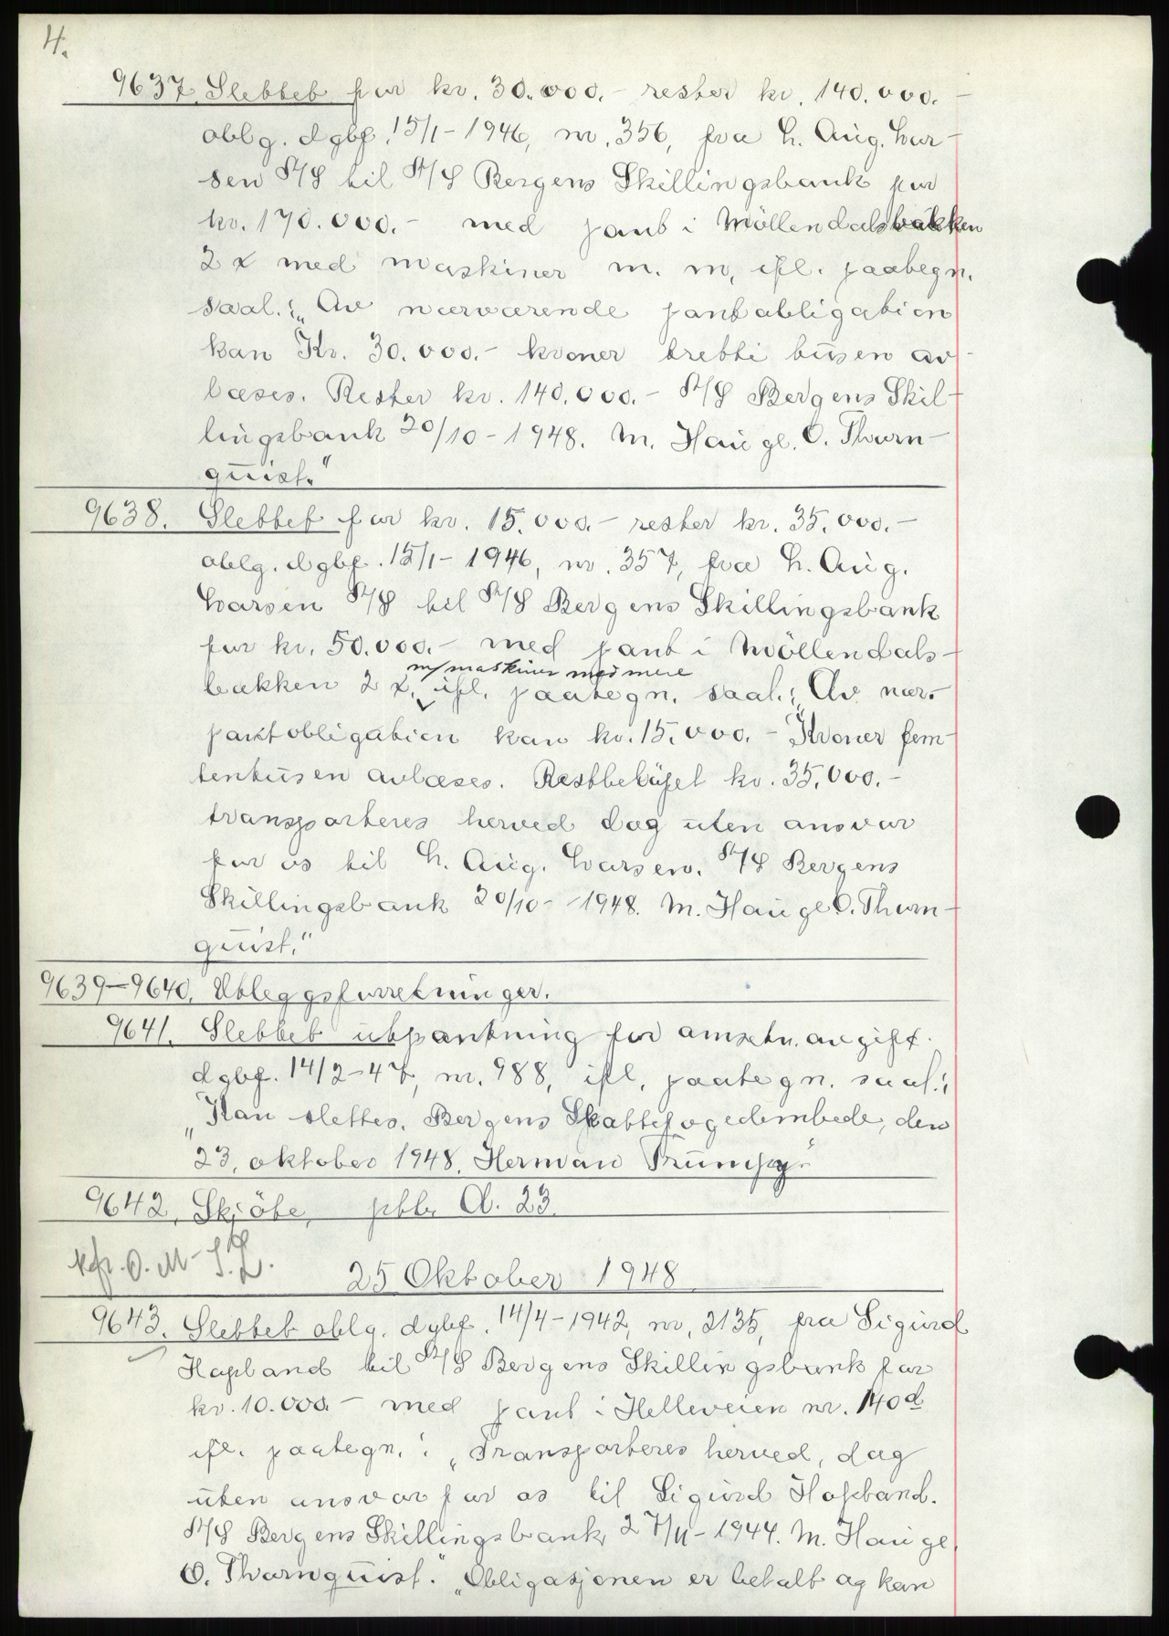 4.
9637. Slettet for kr. 30.000.- rester kr. 140.000.-
oblg. dgbf. 15/1-1946, nr. 356, fra L. Aug. Lar-
sen A/S til A/S Bergens Skillingsbank for
kr. 170.000.- med pant i Möllendalsbakken
2 x med maskiner m. m. ifl. paategn.
saal.: „Av nærværende pantobligation
kan Kr. 30.000.- kroner tretti tusen av-
læses. Rester kr. 140.000.- A/S Bergens Skil-
lingsbank 20/10-1948. M. Hauge. O. Thorn-
quist."
9638. Slettet for kr. 15.000.- rester kr. 35.000.-
oblg. dgbf. 15/1-1946, nr. 357, fra L. Aug.
Larsen A/S til A/S Bergens Skillingsbank
for kr. 50.000.- med pant i Möllendals-
m/maskiner med mere
bakken 2 x, ifl. paategn. saal.: „Av nær.
pantobligation kan kr. 15.000.- Kroner fem-
tentusen avlæses. Restbelöpet kr. 35.000.-
transporteres herved dog uten ansvar
for os til L. Aug. Larsen. A/S Bergens
Skillingsbank 20/10-1948. M. Hauge O. Thorn-
quist."
9639-9640. Utleggsforretninger.
9641. Slettet utpantning for omsetn. avgift.
dgbf. 14/2-47, nr. 988, ifl. paategn. saal.:
„Kan slettes. Bergens Skattefogedembede, den
23. oktober 1948. Herman Trumpy."
9642. Skjöte, pbb. A. 23.
25 Oktober 1948
9643. Slettet oblg. dgbf. 14/4-1942, nr. 2135, fra Sigurd
Hopland til A/S Bergens Skillingsbank for
kr. 10.000.- med pant i Helleveien nr. 140d
ifl. paategn.: „Transporteres herved, dog
uten ansvar for os til Sigurd Hopland.
A/S Bergens Skillingsbank, 27/11-1944. M. Hauge.
O. Thornquist." „Obligasjonen er betalt og kan